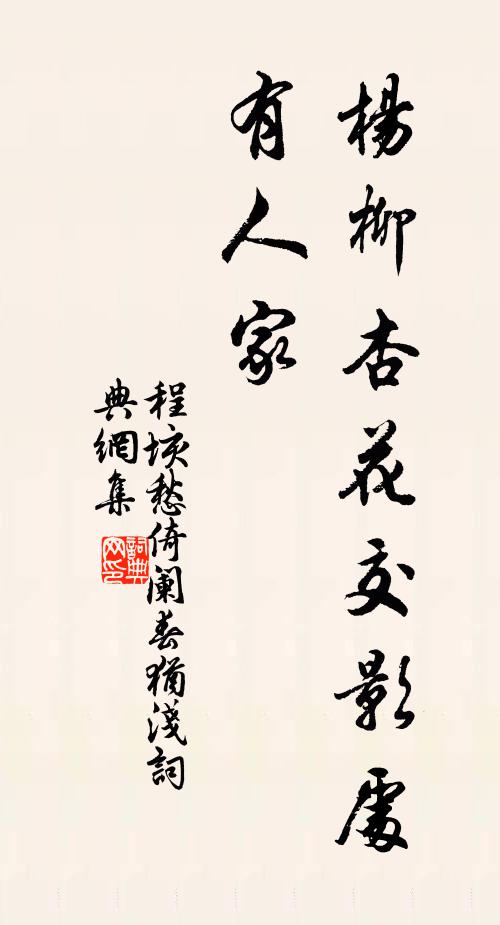 楊柳杏花交影處
有人家
程垓愁倚闌春猶淺詞
典網集
詞典网印